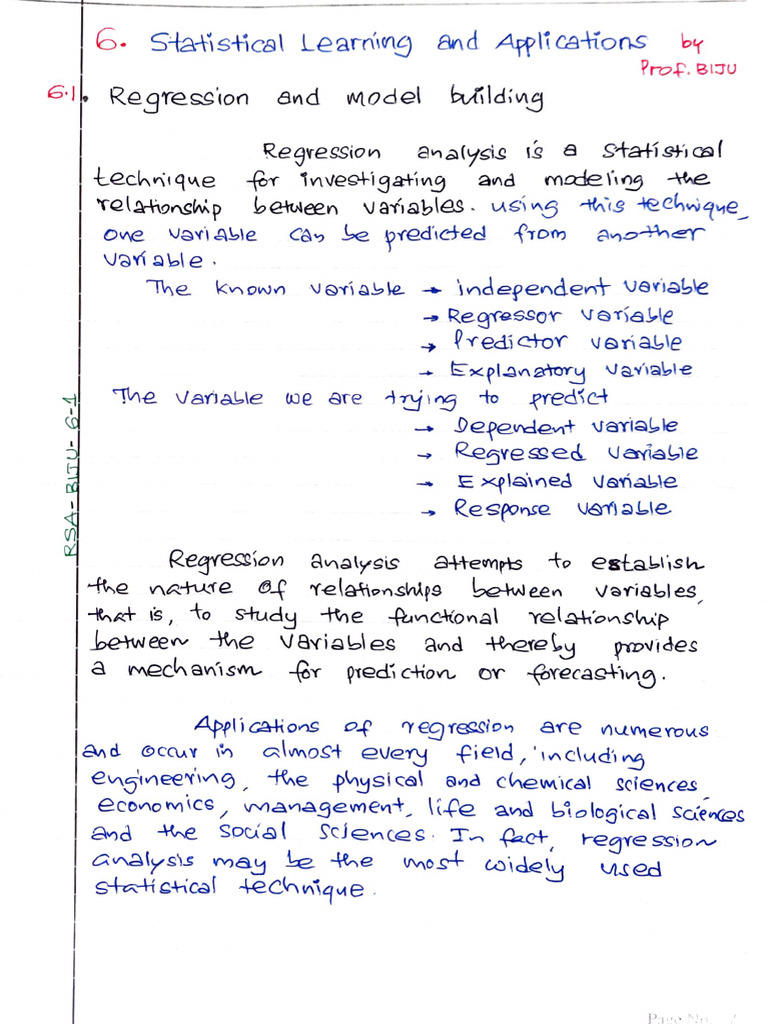 6. Statistical Learning and Applications by
Prof. BIJU
6.1. Regression and model building
Regression analysis is a statistical
technique for investigating and modeling the
relationship between variables. using this technique,
one variable can be predicted from another
variable.
The known variable → independent variable
→ Regressor variable
→ Predictor variable
→ Explanatory variable
The variable we are trying to predict
→ Dependent variable
→ Regressed variable
→ Explained variable
→ Response variable
RSA-BIJU-6-1
Regression analysis attempts to establish
the nature of relationships between variables,
that is, to study the functional relationship
between the variables and thereby provides
a mechanism for prediction or forecasting.
Applications of regression are numerous
and occur in almost every field, including
engineering, the physical and chemical sciences,
economics, management, life and biological sciences
and the social sciences. In fact, regression
analysis may be the most widely used
statistical technique.
Page No.